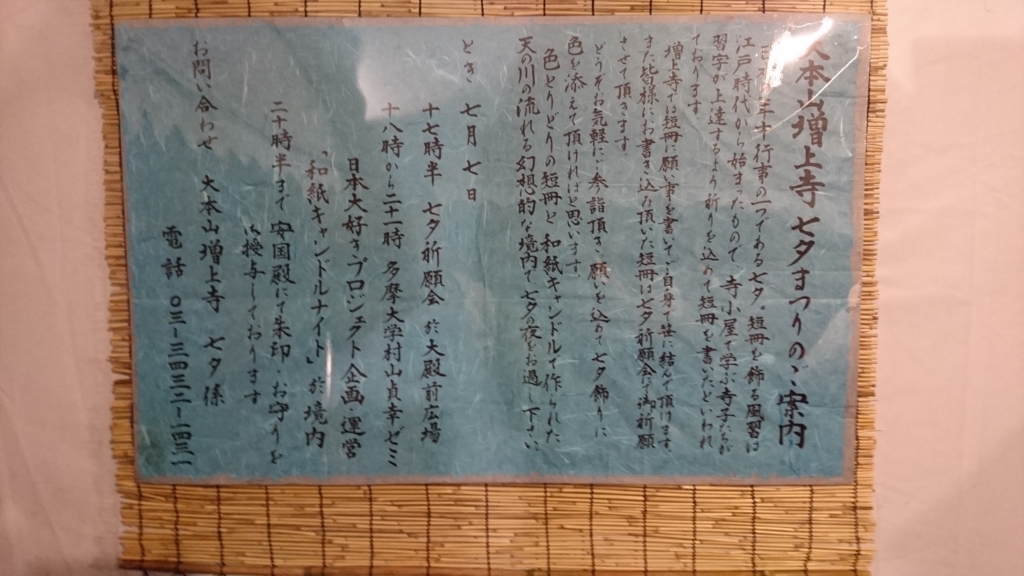 大本山増上寺 七夕まつりのご案内
年中行事の一つである七夕。短冊を飾る風習は
江戸時代から始まったもので、寺小屋で学ぶ寺子たちが
習字が上達するよう祈りを込めて短冊を書いたといわれ
ております。
増上寺では短冊に願い事を書いてご自身で笹に結んで頂けます。
また皆様にお書き込み頂いた短冊は七夕祈願会で御祈願
させて頂きます。
どうぞお気軽にご参詣頂き、願いを込めて七夕飾りに
色を添えて頂ければと思います。
色とりどりの短冊と和紙キャンドルで作られた、
天の川の流れる幻想的な境内で七夕の夜をお過し下さい。
とき 七月七日
十七時半 七夕祈願会 於大殿前広場
十八時から二十一時 多摩大学村山貞幸ゼミ
日本大好きプロジェクト企画・運営
「和紙キャンドルナイト」於境内
二十時半まで 安国殿にて朱印・お守りを
授与しております
お問い合わせ 大本山増上寺 七夕係
電話 〇三-三四三二-一四三一